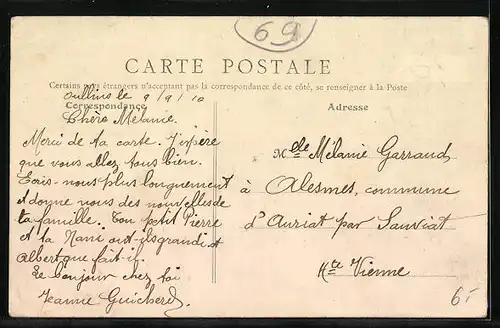 69
CARTE POSTALE
Certains pays étrangers n'acceptant pas la correspondance de ce côté, se renseigner à la Poste
Oullins le 9/9/10
Correspondance
Adresse
Chère Mélanie.
Merci de ta carte. J'espère
que vous allez tous bien.
Ecris-nous plus longuement
et donne nous des nouvelles de
ta famille. Ton petit Pierre
et la Nani ont-ils grandi et
Albert que fait-il.
Le bonjour chez toi
Jeanne Guicherd
Melle Mélanie Garraud
à Alesmes, commune
d'Auriat par Sauviat
Hte Vienne
6f